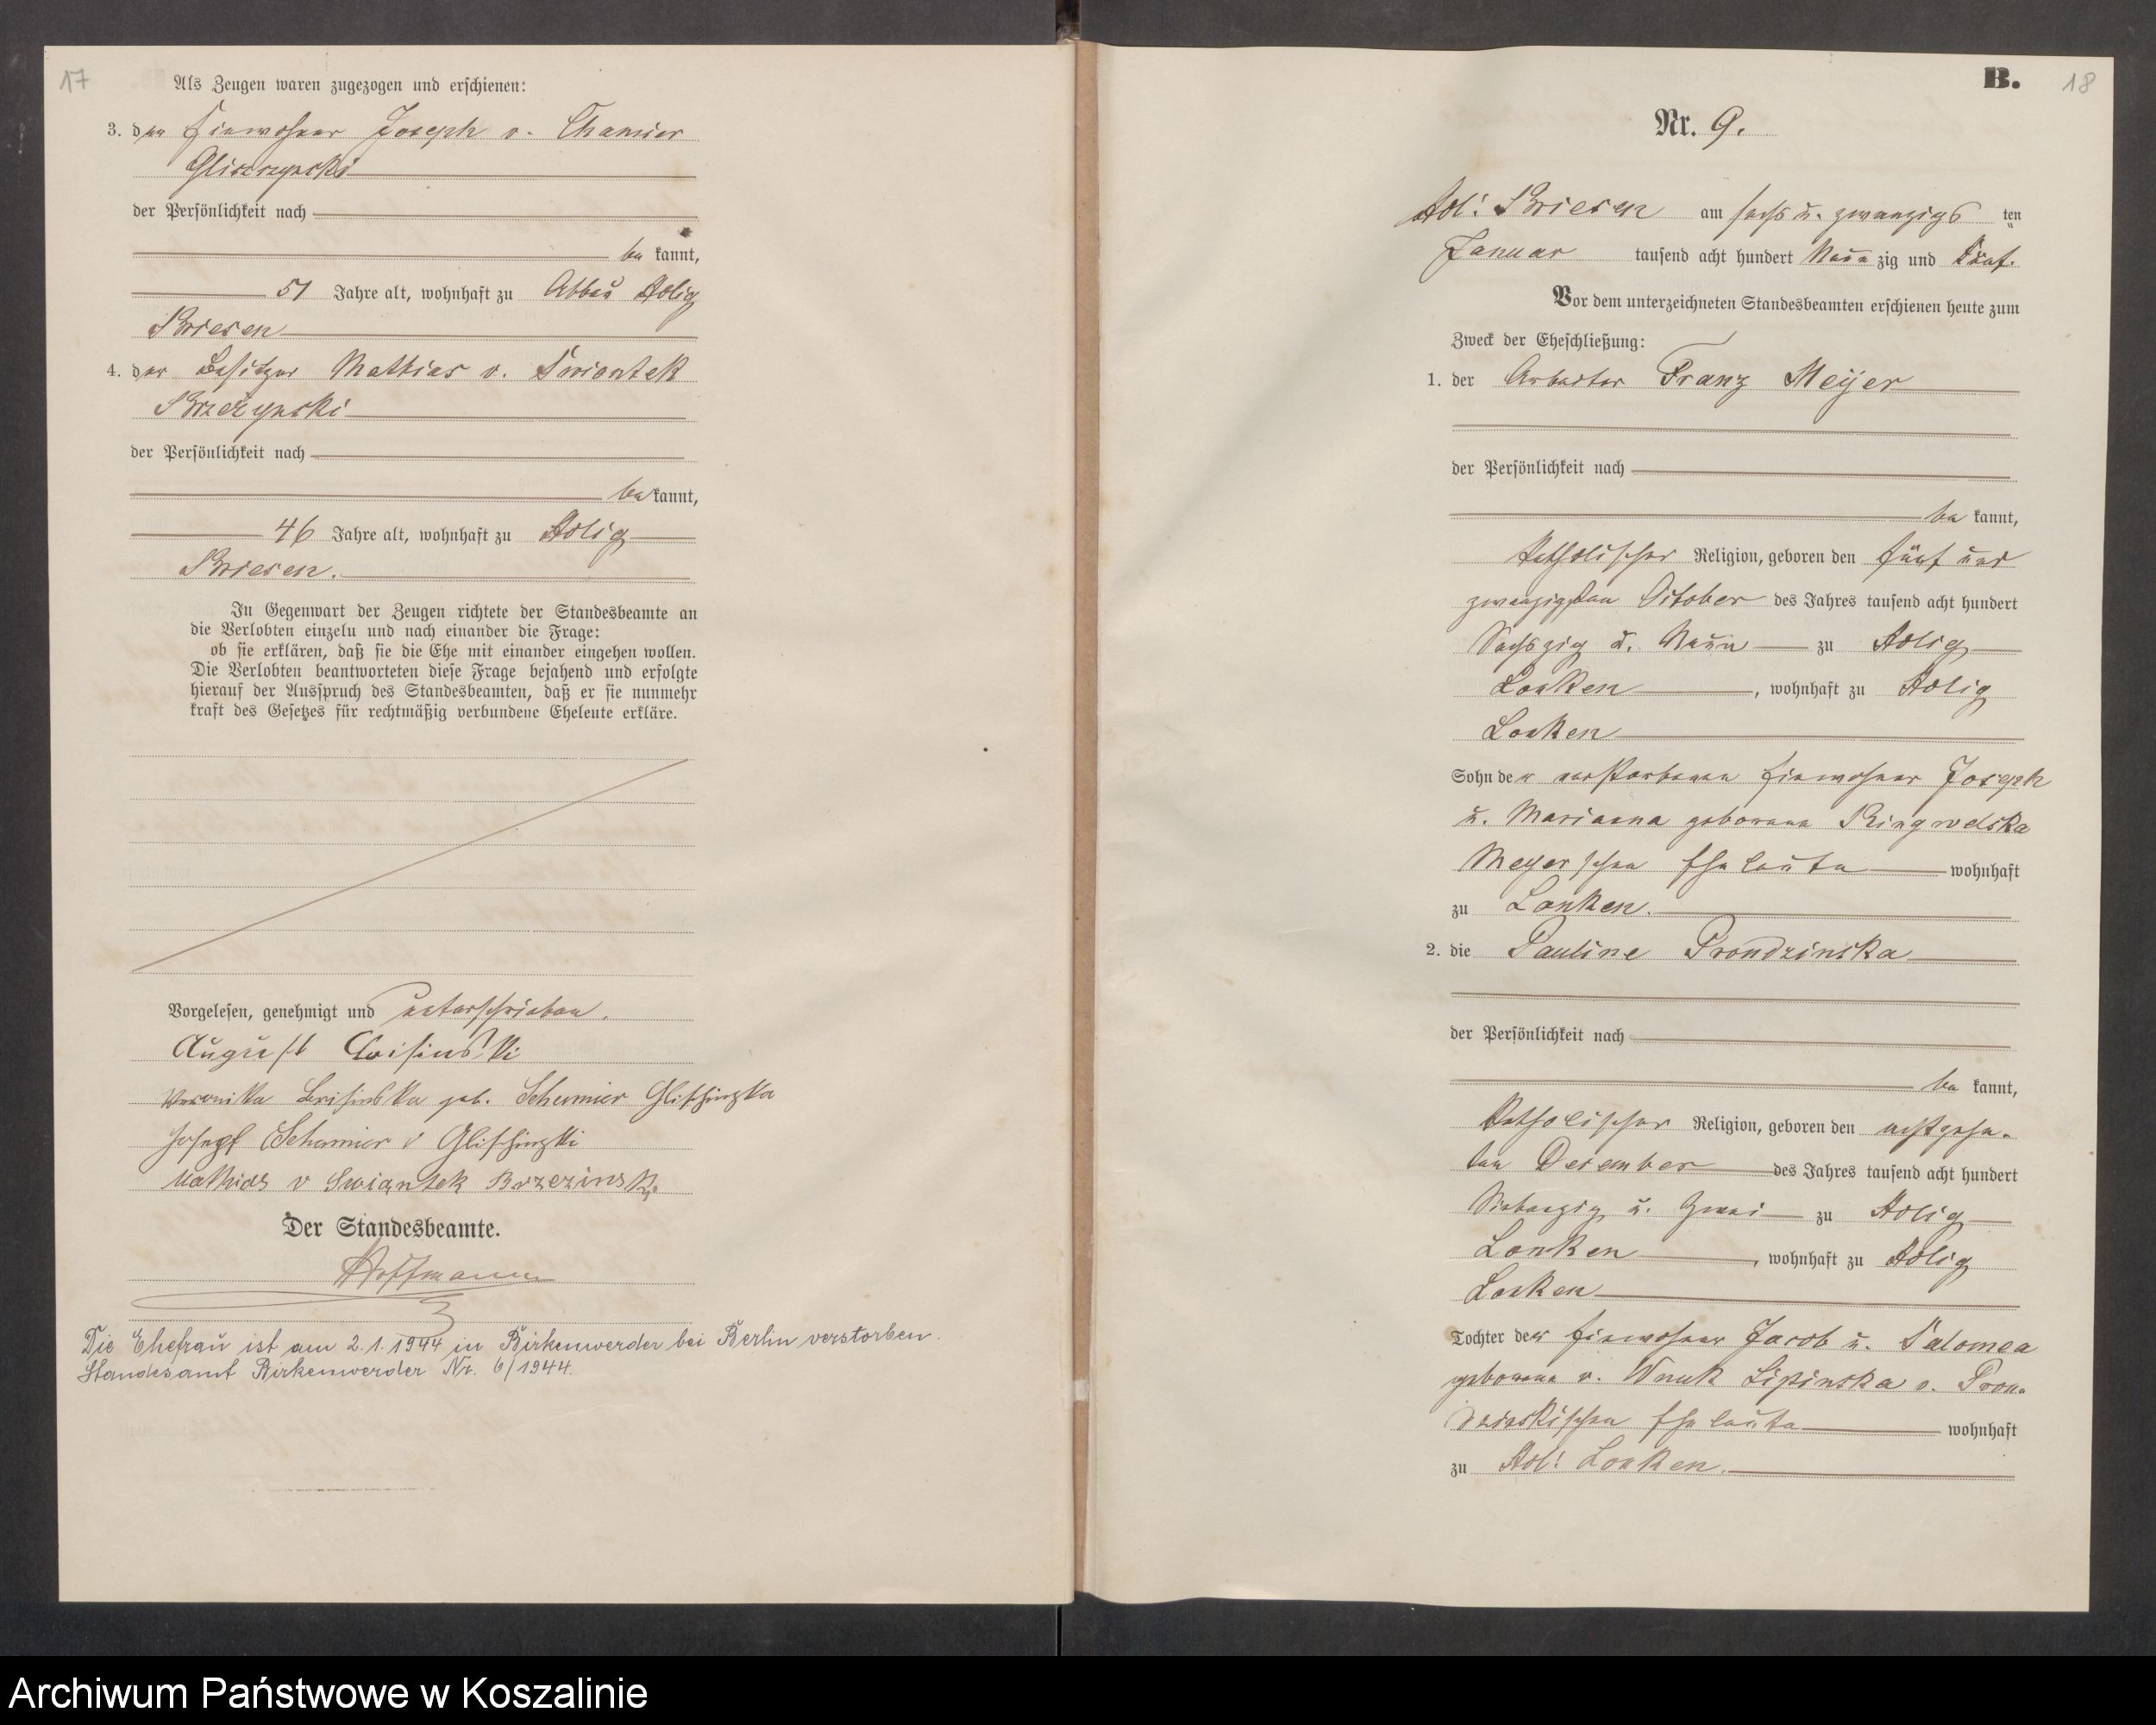 17
Als Zeugen waren zugezogen und erschienen:
3. der Einwohner Joseph v. Chamier
Gliszczynski
der Persönlichkeit nach
be kannt,
51 Jahre alt, wohnhaft zu Abbau Adlig
Briesen
4. der Besitzer Mathias v. Swiontek
Brzezynski
der Persönlichkeit nach
be kannt,
46 Jahre alt, wohnhaft zu Adlig
Briesen.
In Gegenwart der Zeugen richtete der Standesbeamte an
die Verlobten einzeln und nach einander die Frage:
ob sie erklären, daß sie die Ehe mit einander eingehen wollen.
Die Verlobten beantworteten diese Frage bejahend und erfolgte
hierauf der Ausspruch des Standesbeamten, daß er sie nunmehr
kraft des Gesetzes für rechtmäßig verbundene Eheleute erkläre.
Vorgelesen, genehmigt und unterschrieben.
August
Veronika geb. Schemier Glischinzka
Josepf Schamier v Glischinzki
Mathias v Swiantek Brzezinski
Der Standesbeamte.
Hoffmann
Die Ehefrau ist am 2.1.1944 in Birkenwerder bei Berlin verstorben.
Standesamt Birkenwerder Nr. 6/1944.
B. 18
Nr. 9.
Adl: Briesen am sechs u. zwanzigs ten
Januar tausend acht hundert Neun zig und Fünf.
Vor dem unterzeichneten Standesbeamten erschienen heute zum
Zweck der Eheschließung:
1. der Arbeiter Franz Meyer
der Persönlichkeit nach
be kannt,
katholischer Religion, geboren den fünf und
zwanzigsten October des Jahres tausend acht hundert
Sechszig u. Neun zu Adlig
Lonken, wohnhaft zu Adlig
Lonken
Sohn der verstorbenen Einwohner Joseph
u. Marianna geborene Ringwelska
Meyerschen Eheleute wohnhaft
zu Lonken.
2. die Pauline Prondzinska
der Persönlichkeit nach
be kannt,
katholischer Religion, geboren den achtzehn-
ten December des Jahres tausend acht hundert
Siebenzig u. Zwei zu Adlig
Lonken, wohnhaft zu Adlig
Lonken
Tochter der Einwohner Jacob u. Salomea
geborene v. Wnuk Lipinska v. Pron-
dzinskischen Eheleute wohnhaft
zu Adl: Lonken.
Archiwum Państwowe w Koszalinie